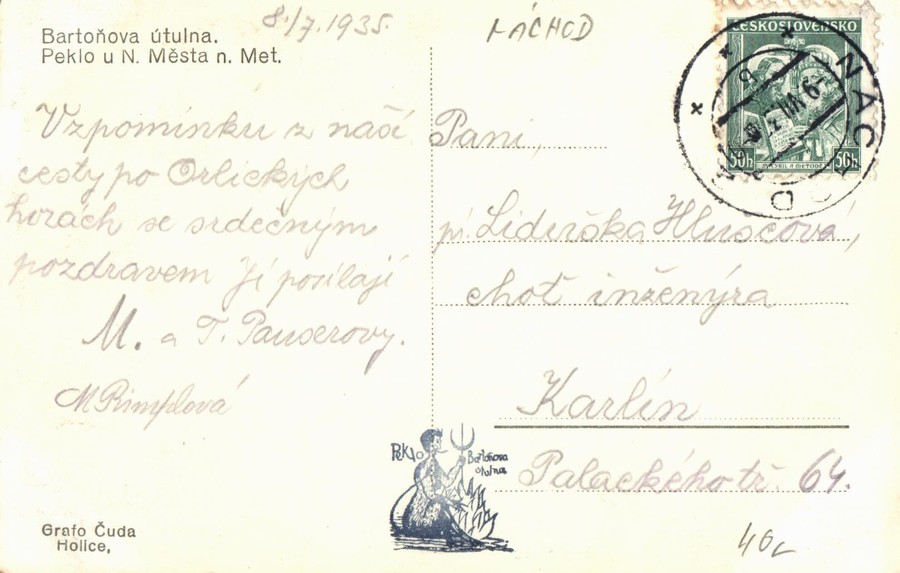 Bartoňova útulna.
Peklo u N. Města n. Met.
8./7. 1935.
NÁCHOD
ČESKOSLOVENSKO
50h 50h
CYRIL A METODĚJ
NÁCHOD
Vzpomínku z naší
cesty po Orlických
horách se srdečným
pozdravem Jí posílají
M. a T. Pauserovy.
M Rimplová
Paní,
pí. Liduška Hlusčová,
choť inženýra
Karlín
Palackého tř. 64.
Peklo Bartoňova
útulna
Grafo Čuda
Holice,